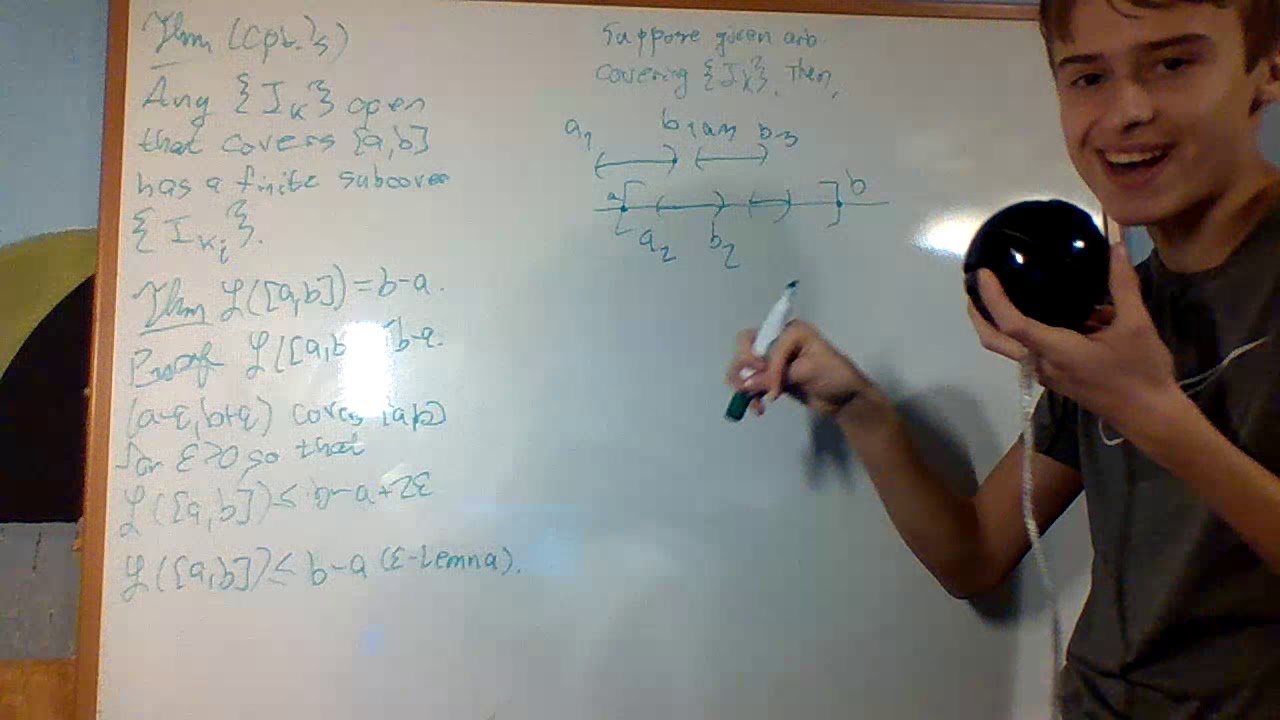 Thm (Cpt.)s)
Any {I_k} open
that covers [a,b]
has a finite subcover
{I_{k_i}}.
Thm ℒ([a,b])=b-a.
Proof ℒ([a,b ≤ b-a.
(a-ε,b+ε) covers [a,b]
for ε>0 so that
ℒ([a,b])≤ b-a+2ε
ℒ([a,b])≤ b-a (ε-Lemna).
Suppose given arb.
covering {I_k}. Then,
a_1 b_1 a_3 b_3
a b
a_2 b_2